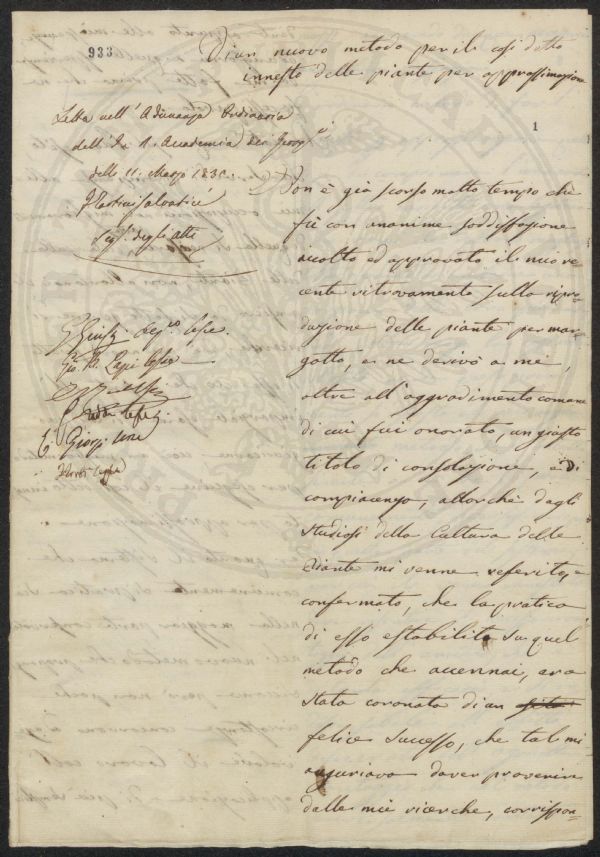 933
Di un nuovo metodo per il così detto
innesto delle piante per approssimazione
1
Letta nell'Adunanza Ordinaria
dell'I. e R. Accademia dei Georg.li
dello 11. Marzo 183
Segr. degli atti
Non è già scorso molto tempo che
fù con unanime soddisfazione
accolto ed approvato il mio re-
cente ritrovamento sulla ripro-
duzione delle piante per mar-
gotto, e ne derivò a me,
oltre all'aggradimento comune
di cui fui onorato, un giusto
titolo di consolazione, e di
compiacenza, allorchè dagli
studiosi della Cultura delle
Piante mi venne referito, e
confermato, che la pratica
di esso establita su quel
metodo che accennai, era
stata coronata di un
felice successo, che tal mi
auguriavo dover provenire
dalle mie ricerche, corrispon-
Giusti
Lapi
Giorgi